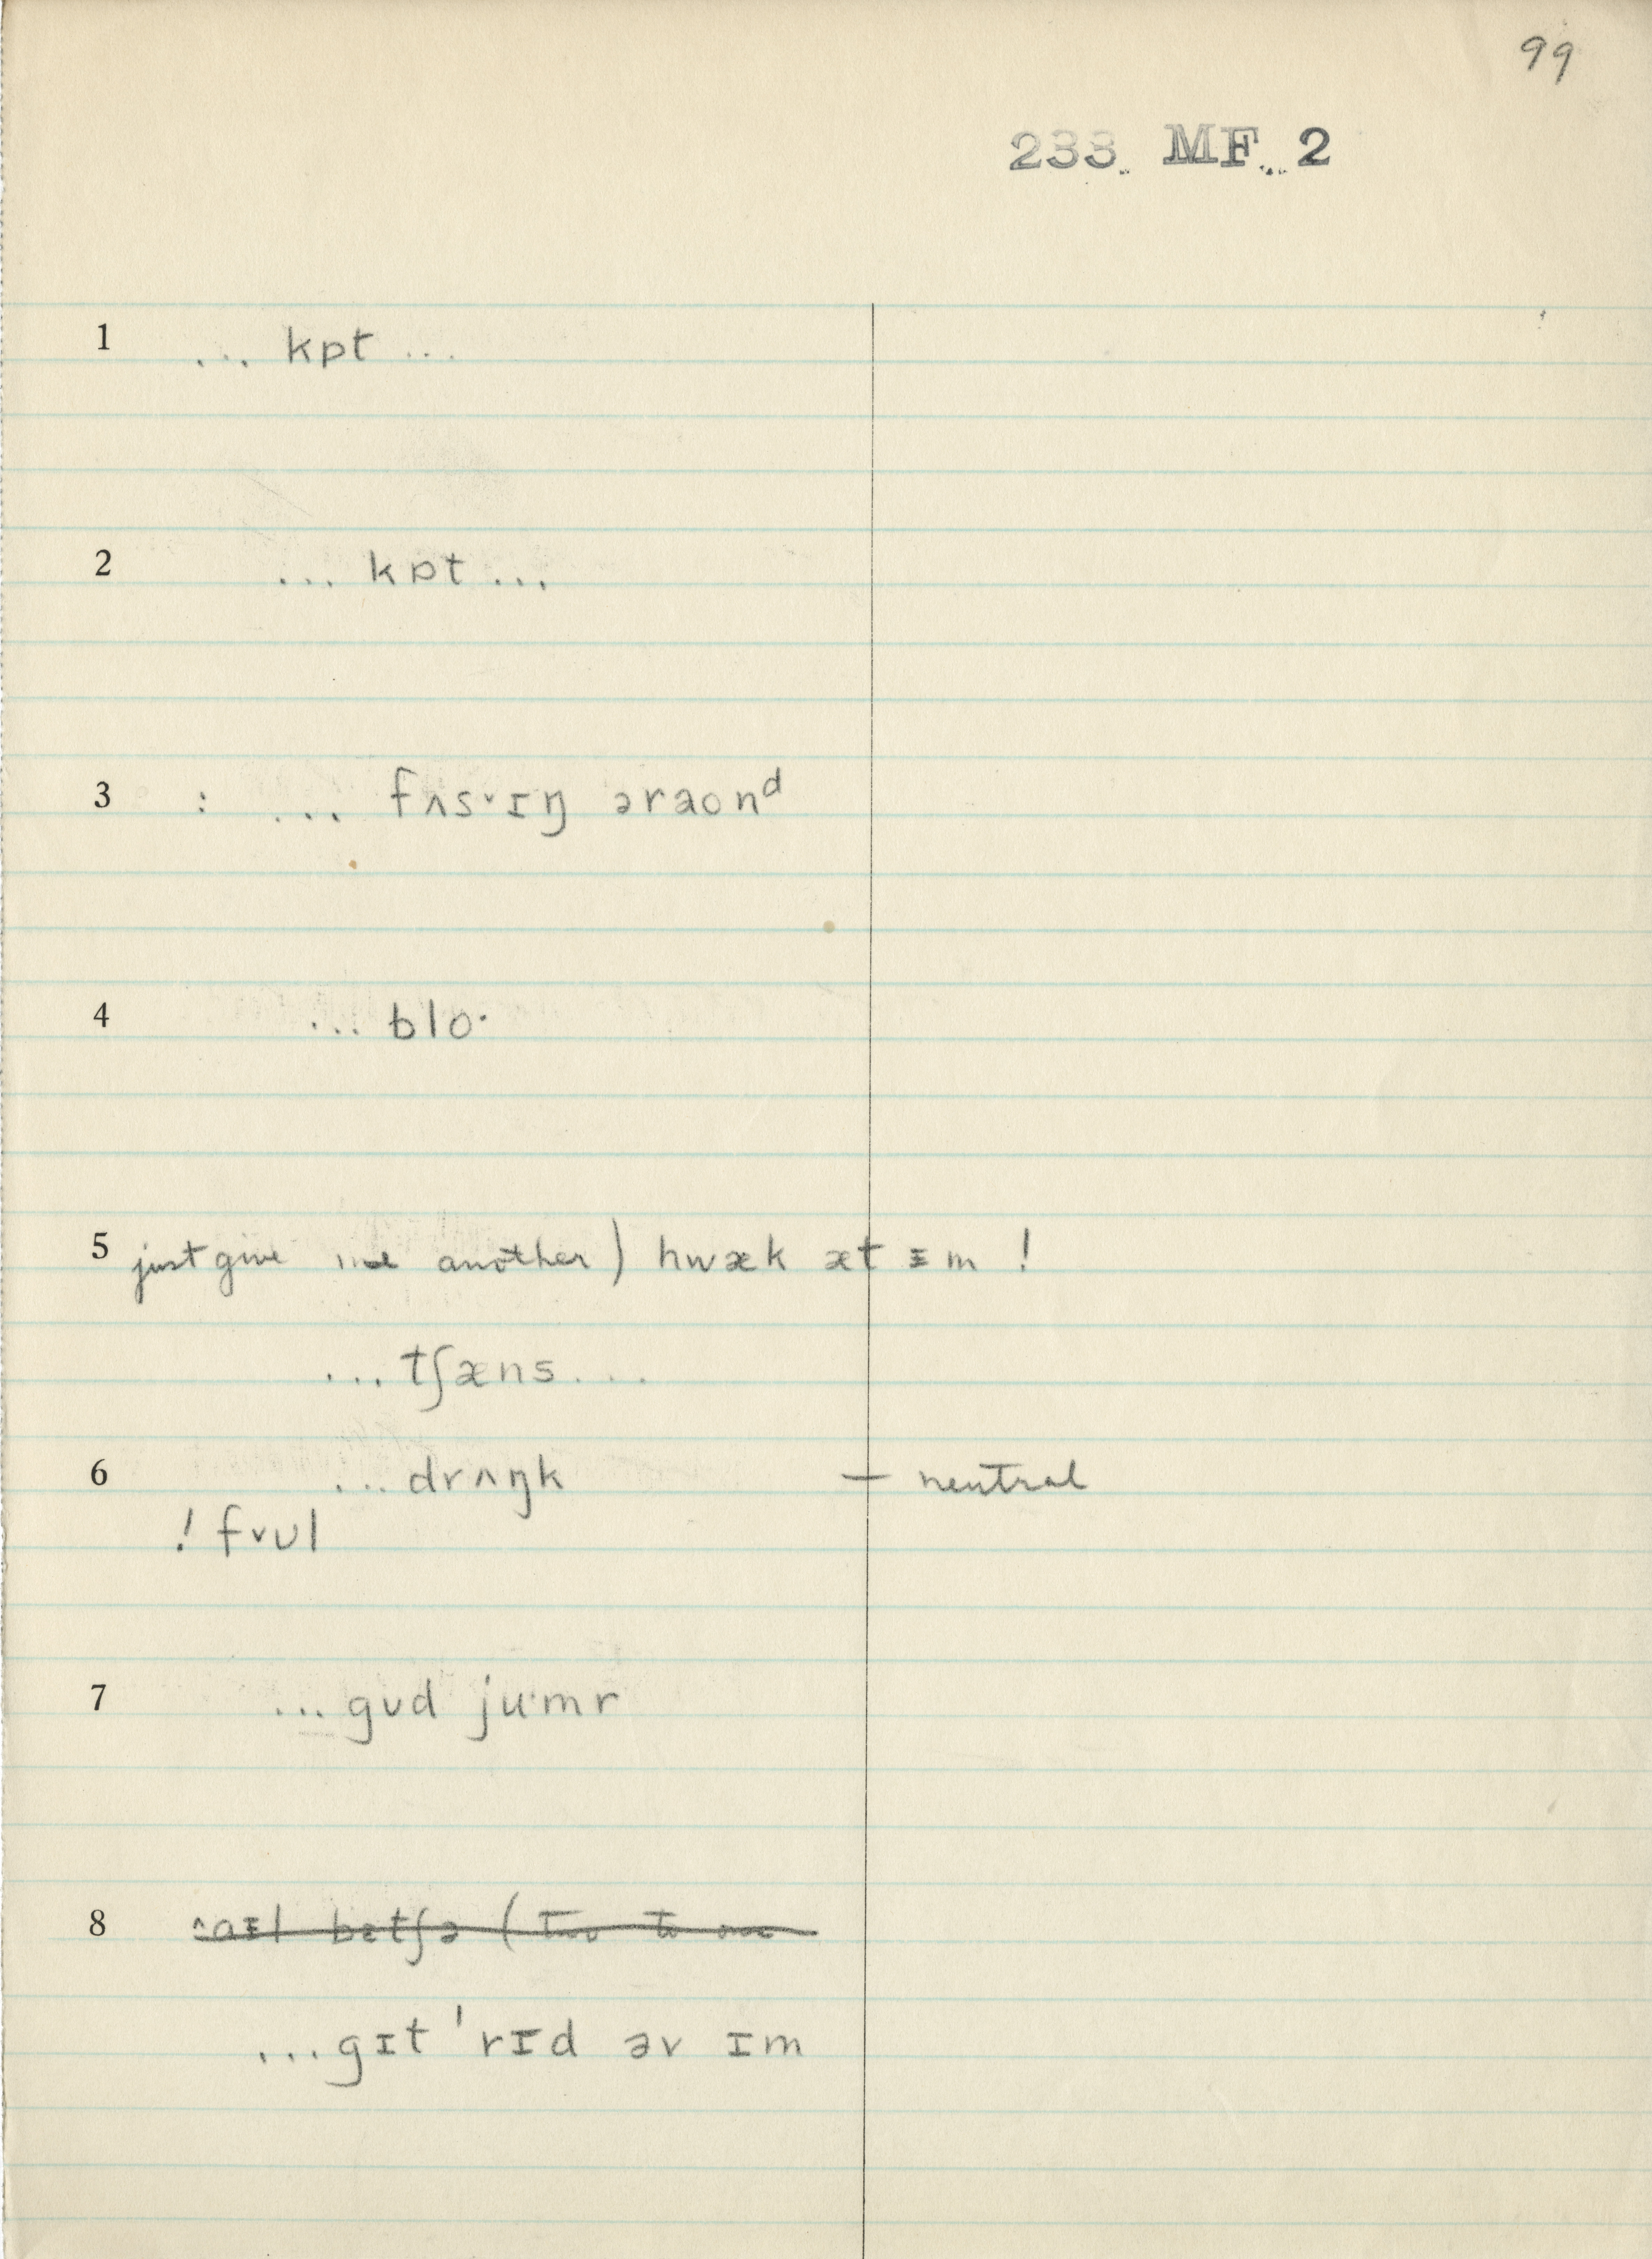 99
233 MF 2
1 ... kɒt ...
2 ... kɒt ...
3 : ... fʌs˅ɪŋ əraond
4 ... blo·
5 just give me another) hwæk æt ɪm !
... tʃæns ...
6 ... drʌŋk — neutral
! f˅ʊl
7 ... gʊd ju·mr
8 ˄aɪl bɛtʃə (two to one
... gɪt 'rɪd əv ɪm